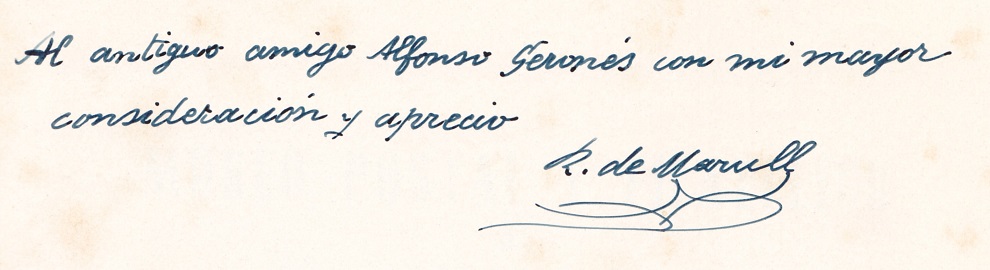 Al antiguo amigo Alfonso Geronés con mi mayor
consideración y aprecio
R. de Marull